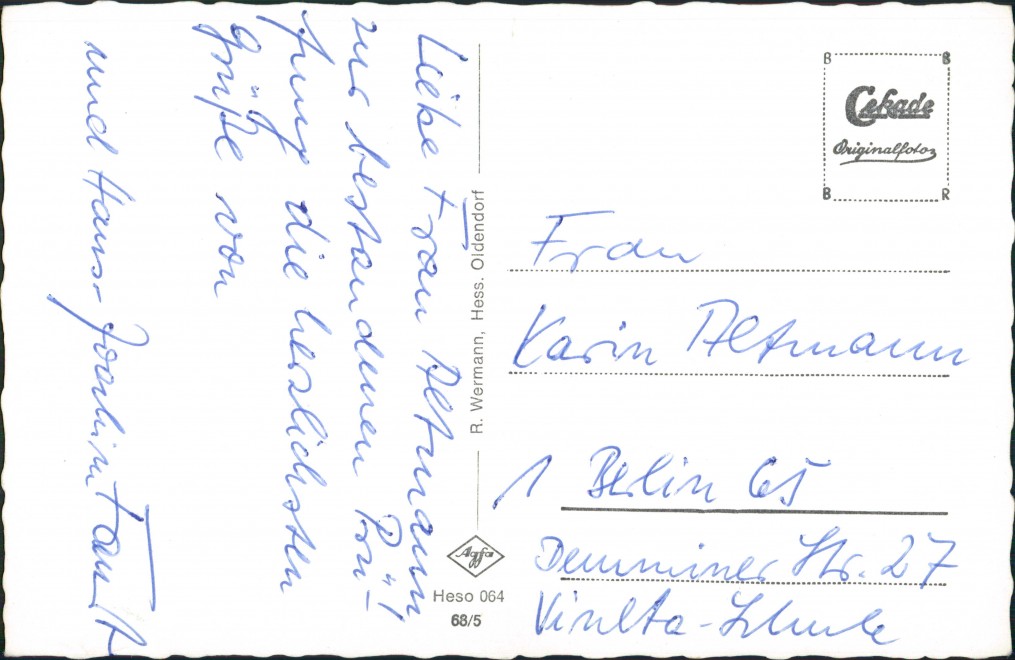 Liebe Frau Altmann
zur bestandenen Prü-
fung die herzlichsten
Grüße von
und Hans-Joachim
R. Wermann, Hess. Oldendorf
Agfa
Heso 064
68/5
B B
Cekade
Originalfotos
B R
Frau
Karin Altmann
1 Berlin 65
Demminer Str. 27
Vineta-Schule